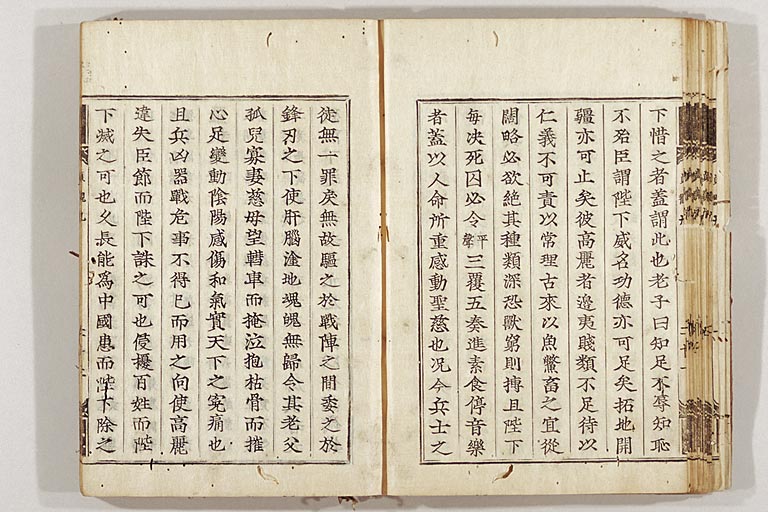 下惜之者蓋謂此也老子曰知足不辱知恥
不殆臣謂陛下威名功德亦可足矣拓地開
疆亦可止矣彼高麗者邊夷賤類不足待以
仁義不可責以常理古來以魚鱉畜之宜從
闊略必欲絶其種類深恐獸窮則搏且陛下
每决死囚必令三覆五奏進素食停音樂
者蓋以人命所重感動聖慈也况今兵士之
徒無一罪戾無故驅之於戰陣之間委之於
鋒刃之下使肝腦塗地魂魄無歸令其老父
孤兒寡妻慈母望轊車而掩泣抱枯骨而摧
心足變動陰陽感傷和氣實天下之寃痛也
且兵凶器戰危事不得已而用之向使高麗
違失臣節而陛下誅之可也侵擾百姓而陛
下滅之可也久長能爲中國患而陛下除之